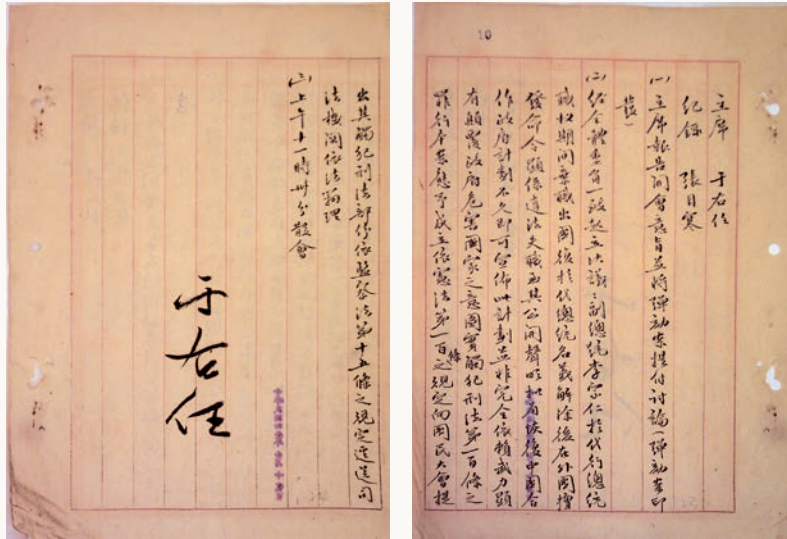 10
主席 于右任
紀錄 張目寒
㈠主席報告開會意旨並將彈劾案提付討論（彈劾案印
發）
㈡經全體委員一致起立決議：副總統李宗仁於代行總統
職權期間棄職出國復於代總統名義解除後在外國擅
發命令顯係違法失職至其公開聲明如有恢復中國合
作政府計劃不久即可宣佈此計劃並非完全依賴武力顯
有顛覆政府危害國家之意圖實觸犯刑法第一百條之
罪行本案應予成立依憲法第一百條之規定向國民大會提
23
出其觸犯刑法部份依監察法第十五條之規定逕送司
法機關依法辦理
㈢上午十一時卅分散會
于右任
24